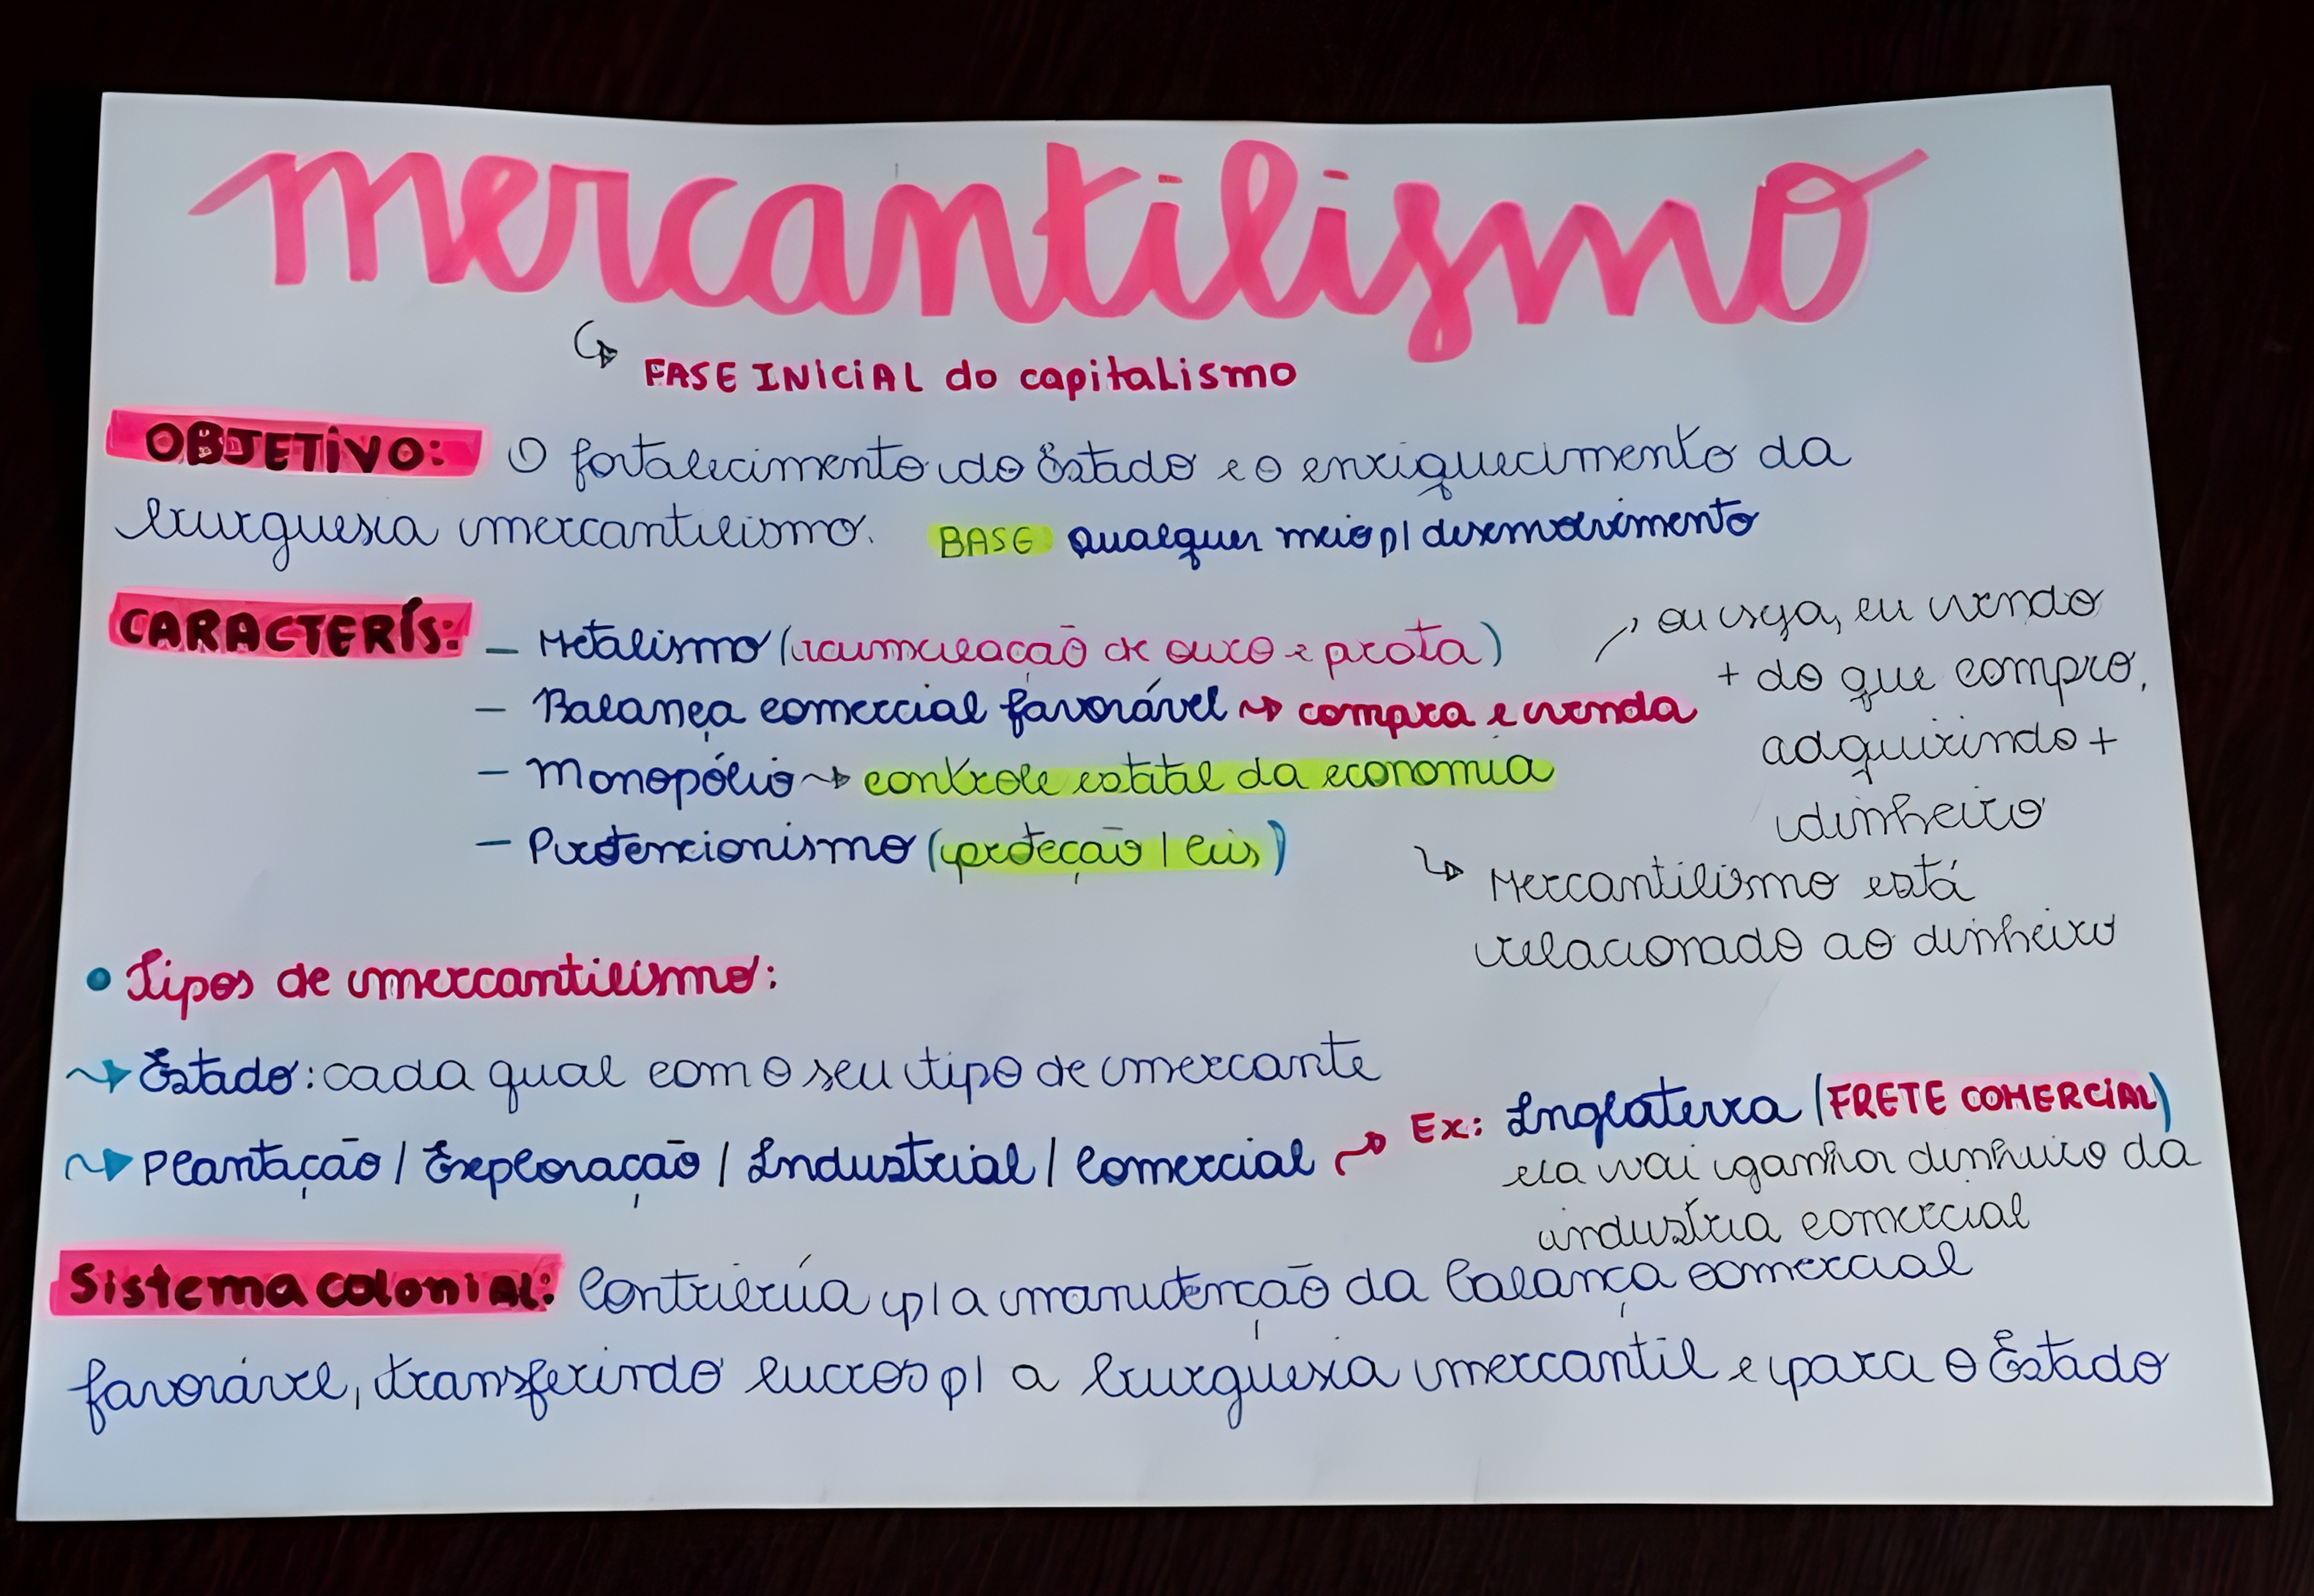 mercantilismo
FASE INICIAL do capitalismo
OBJETIVO: O fortalecimento do Estado e o enriquecimento da
burguesia mercantilismo. BASE qualquer meio p/ desenvolvimento
CARACTERÍS: - Metalismo (acumulação de ouro e prata)
- Balança comercial favorável compra e venda
ou seja, eu vendo
+ do que compro,
adquirindo +
dinheiro
- Monopólio controle estatal da economia
- Protencionismo (proteção / leis)
Mercantilismo está
relacionado ao dinheiro
• Tipos de mercantilismo:
Estado: cada qual com o seu tipo de mercante
Plantação / Exploração / Industrial / Comercial Ex: Inglaterra (FRETE COMERCIAL)
ela vai ganhar dinheiro da
industria comercial
Sistema colonial: Contribuía p/ a manutenção da balança comercial
favorável, transferindo lucros p/ a burguesia mercantil e para o Estado